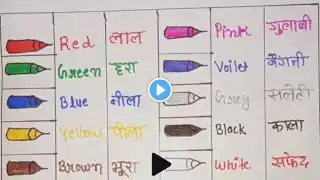 Red लाल Pink गुलाबी
Green हरा Voilet बैंगनी
Blue नीला Grey सलेटी
Yellow पीला Black काला
Brown भूरा White सफेद